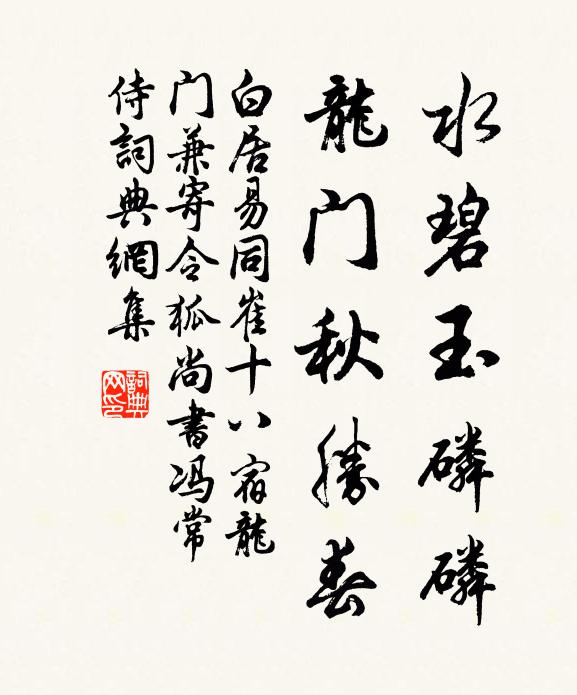 水碧玉磷磷
龍门秋勝春
白居易同崔十八宿龍
门兼寄令狐尚書冯常
侍詞典網集
詞典
网印